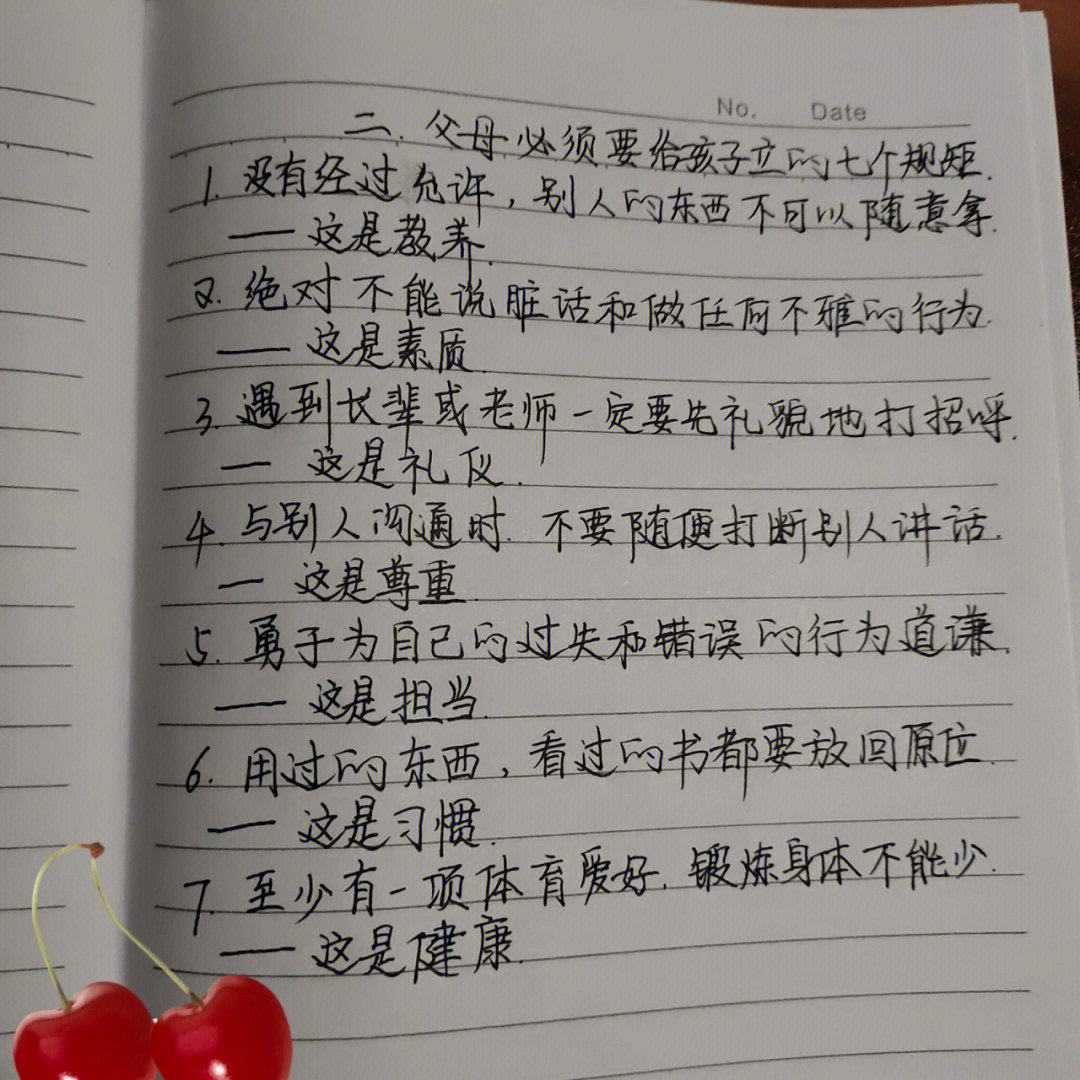 No. Date
二. 父母必须要给孩子立的七个规矩.
1. 没有经过允许, 别人的东西不可以随意拿.
—— 这是教养.
2. 绝对不能说脏话和做任何不雅的行为.
—— 这是素质.
3. 遇到长辈或老师一定要先礼貌地打招呼.
— 这是礼仪.
4. 与别人沟通时. 不要随便打断别人讲话.
— 这是尊重.
5. 勇于为自己的过失和错误的行为道谦.
—— 这是担当.
6. 用过的东西, 看过的书都要放回原位.
—— 这是习惯.
7. 至少有一项体育爱好. 锻炼身体不能少.
—— 这是健康.